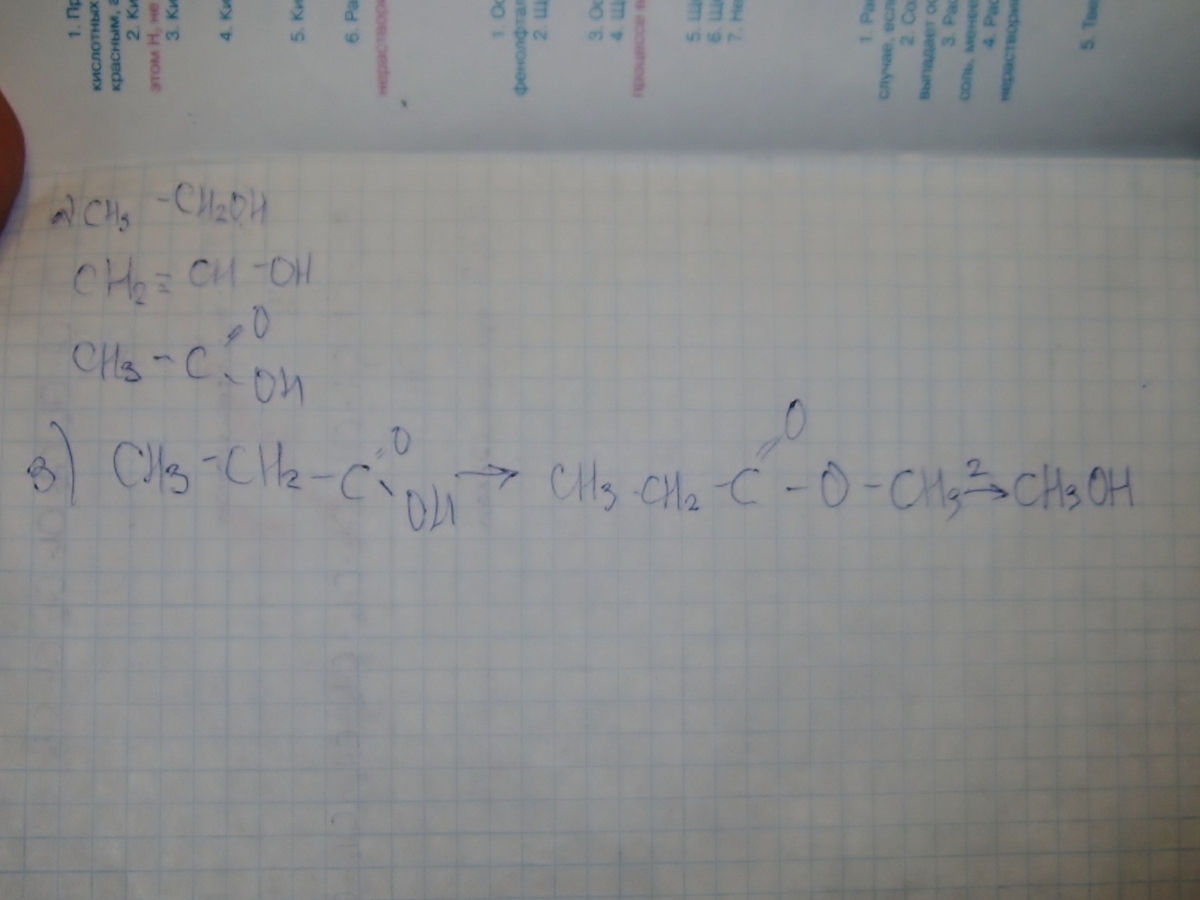 1. Пр
кислотных
красным, а
2. Ки
этом H₂ не
3. Ки
4. Ки
5. Ки
6. Ра
нерастворим
1. Ос
фенолфтал
2. Щ
3. Ос
4. Щ
процессе в
5. Ще
6. Ще
7. Не
1. Рас
случае, есл
2. Сол
выпадает ос
3. Рас
соль, менее
4. Рас
нераствори
2) CH₃ - CH₂OH
CH₂ = CH - OH
CH₃ - C = O - OH
3) CH₃ - CH₂ - C = O - OH → CH₃ - CH₂ - C = O - O - CH₃ 2→ CH₃OH